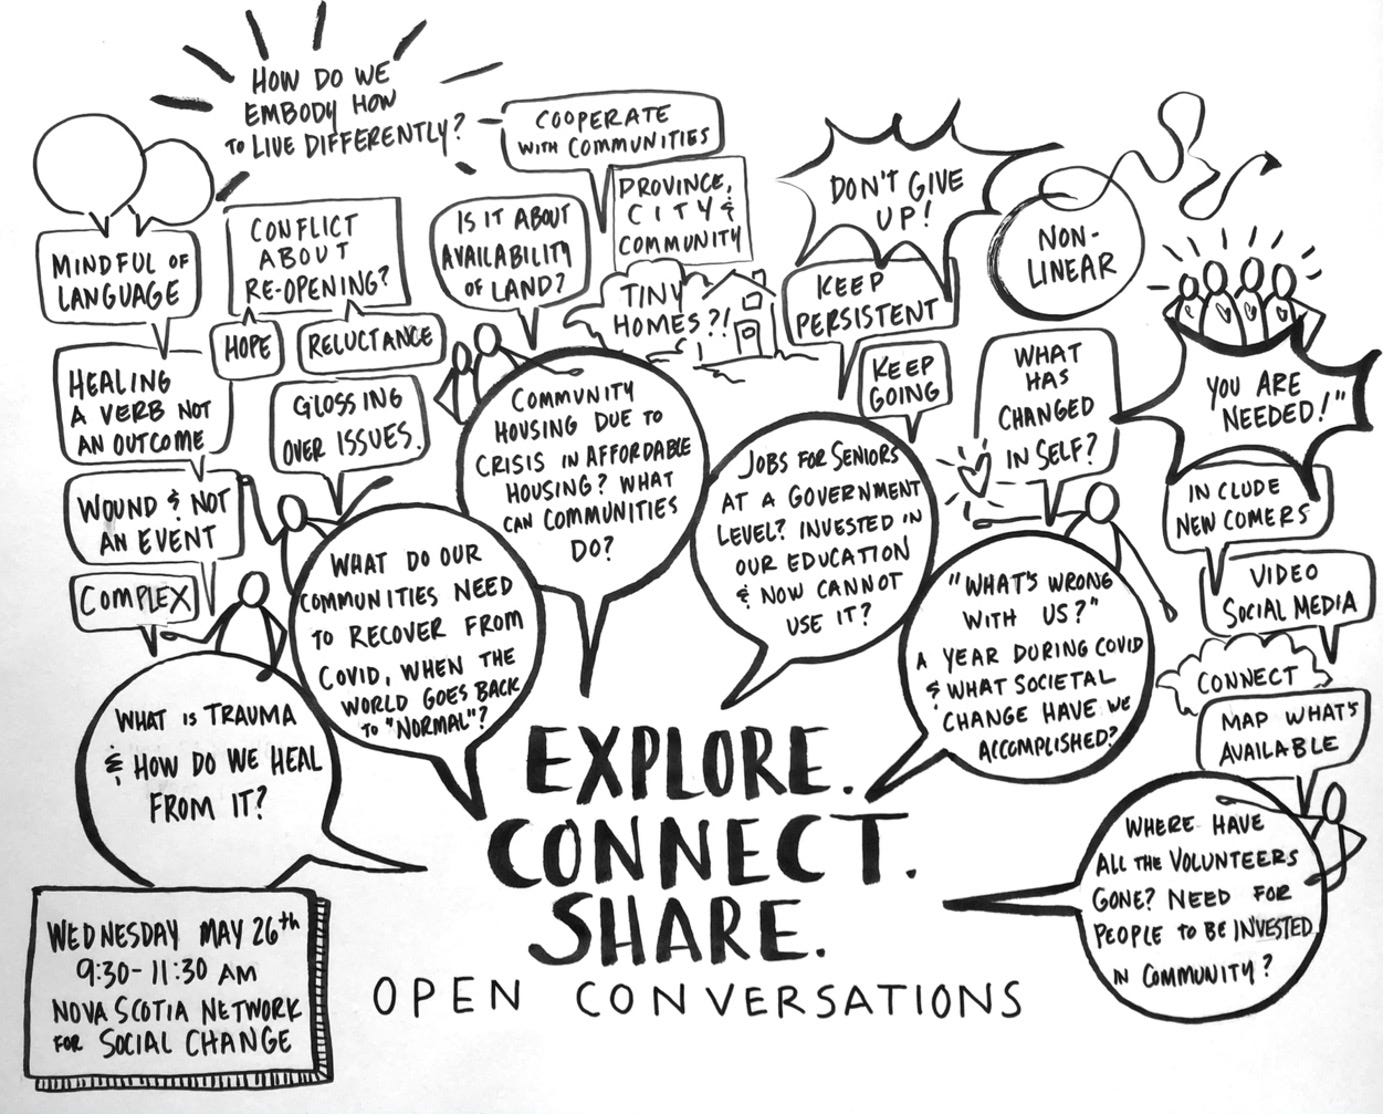 HOW DO WE
EMBODY HOW
TO LIVE DIFFERENTLY?
COOPERATE
WITH COMMUNITIES
PROVINCE,
CITY &
COMMUNITY
DON'T GIVE
UP!
NON-
LINEAR
MINDFUL OF
LANGUAGE
CONFLICT
ABOUT
RE-OPENING?
IS IT ABOUT
AVAILABILITY
OF LAND?
TINY
HOMES?!
KEEP
PERSISTENT
HOPE
RELUCTANCE
KEEP
GOING
WHAT
HAS
CHANGED
IN SELF?
YOU ARE
NEEDED!"
HEALING
A VERB NOT
AN OUTCOME
GLOSSING
OVER ISSUES.
COMMUNITY
HOUSING DUE TO
CRISIS IN AFFORDABLE
HOUSING? WHAT
CAN COMMUNITIES
DO?
JOBS FOR SENIORS
AT A GOVERNMENT
LEVEL? INVESTED IN
OUR EDUCATION
& NOW CANNOT
USE IT?
INCLUDE
NEW COMERS
WOUND & NOT
AN EVENT
COMPLEX
WHAT DO OUR
COMMUNITIES NEED
TO RECOVER FROM
COVID, WHEN THE
WORLD GOES BACK
TO "NORMAL"?
"WHAT'S WRONG
WITH US?"
A YEAR DURING COVID
& WHAT SOCIETAL
CHANGE HAVE WE
ACCOMPLISHED?
VIDEO
SOCIAL MEDIA
CONNECT
MAP WHAT'S
AVAILABLE
WHAT IS TRAUMA
& HOW DO WE HEAL
FROM IT?
WHERE HAVE
ALL THE VOLUNTEERS
GONE? NEED FOR
PEOPLE TO BE INVESTED
IN COMMUNITY?
EXPLORE.
CONNECT.
SHARE.
OPEN CONVERSATIONS
WEDNESDAY MAY 26th
9:30-11:30 AM
NOVA SCOTIA NETWORK
FOR SOCIAL CHANGE